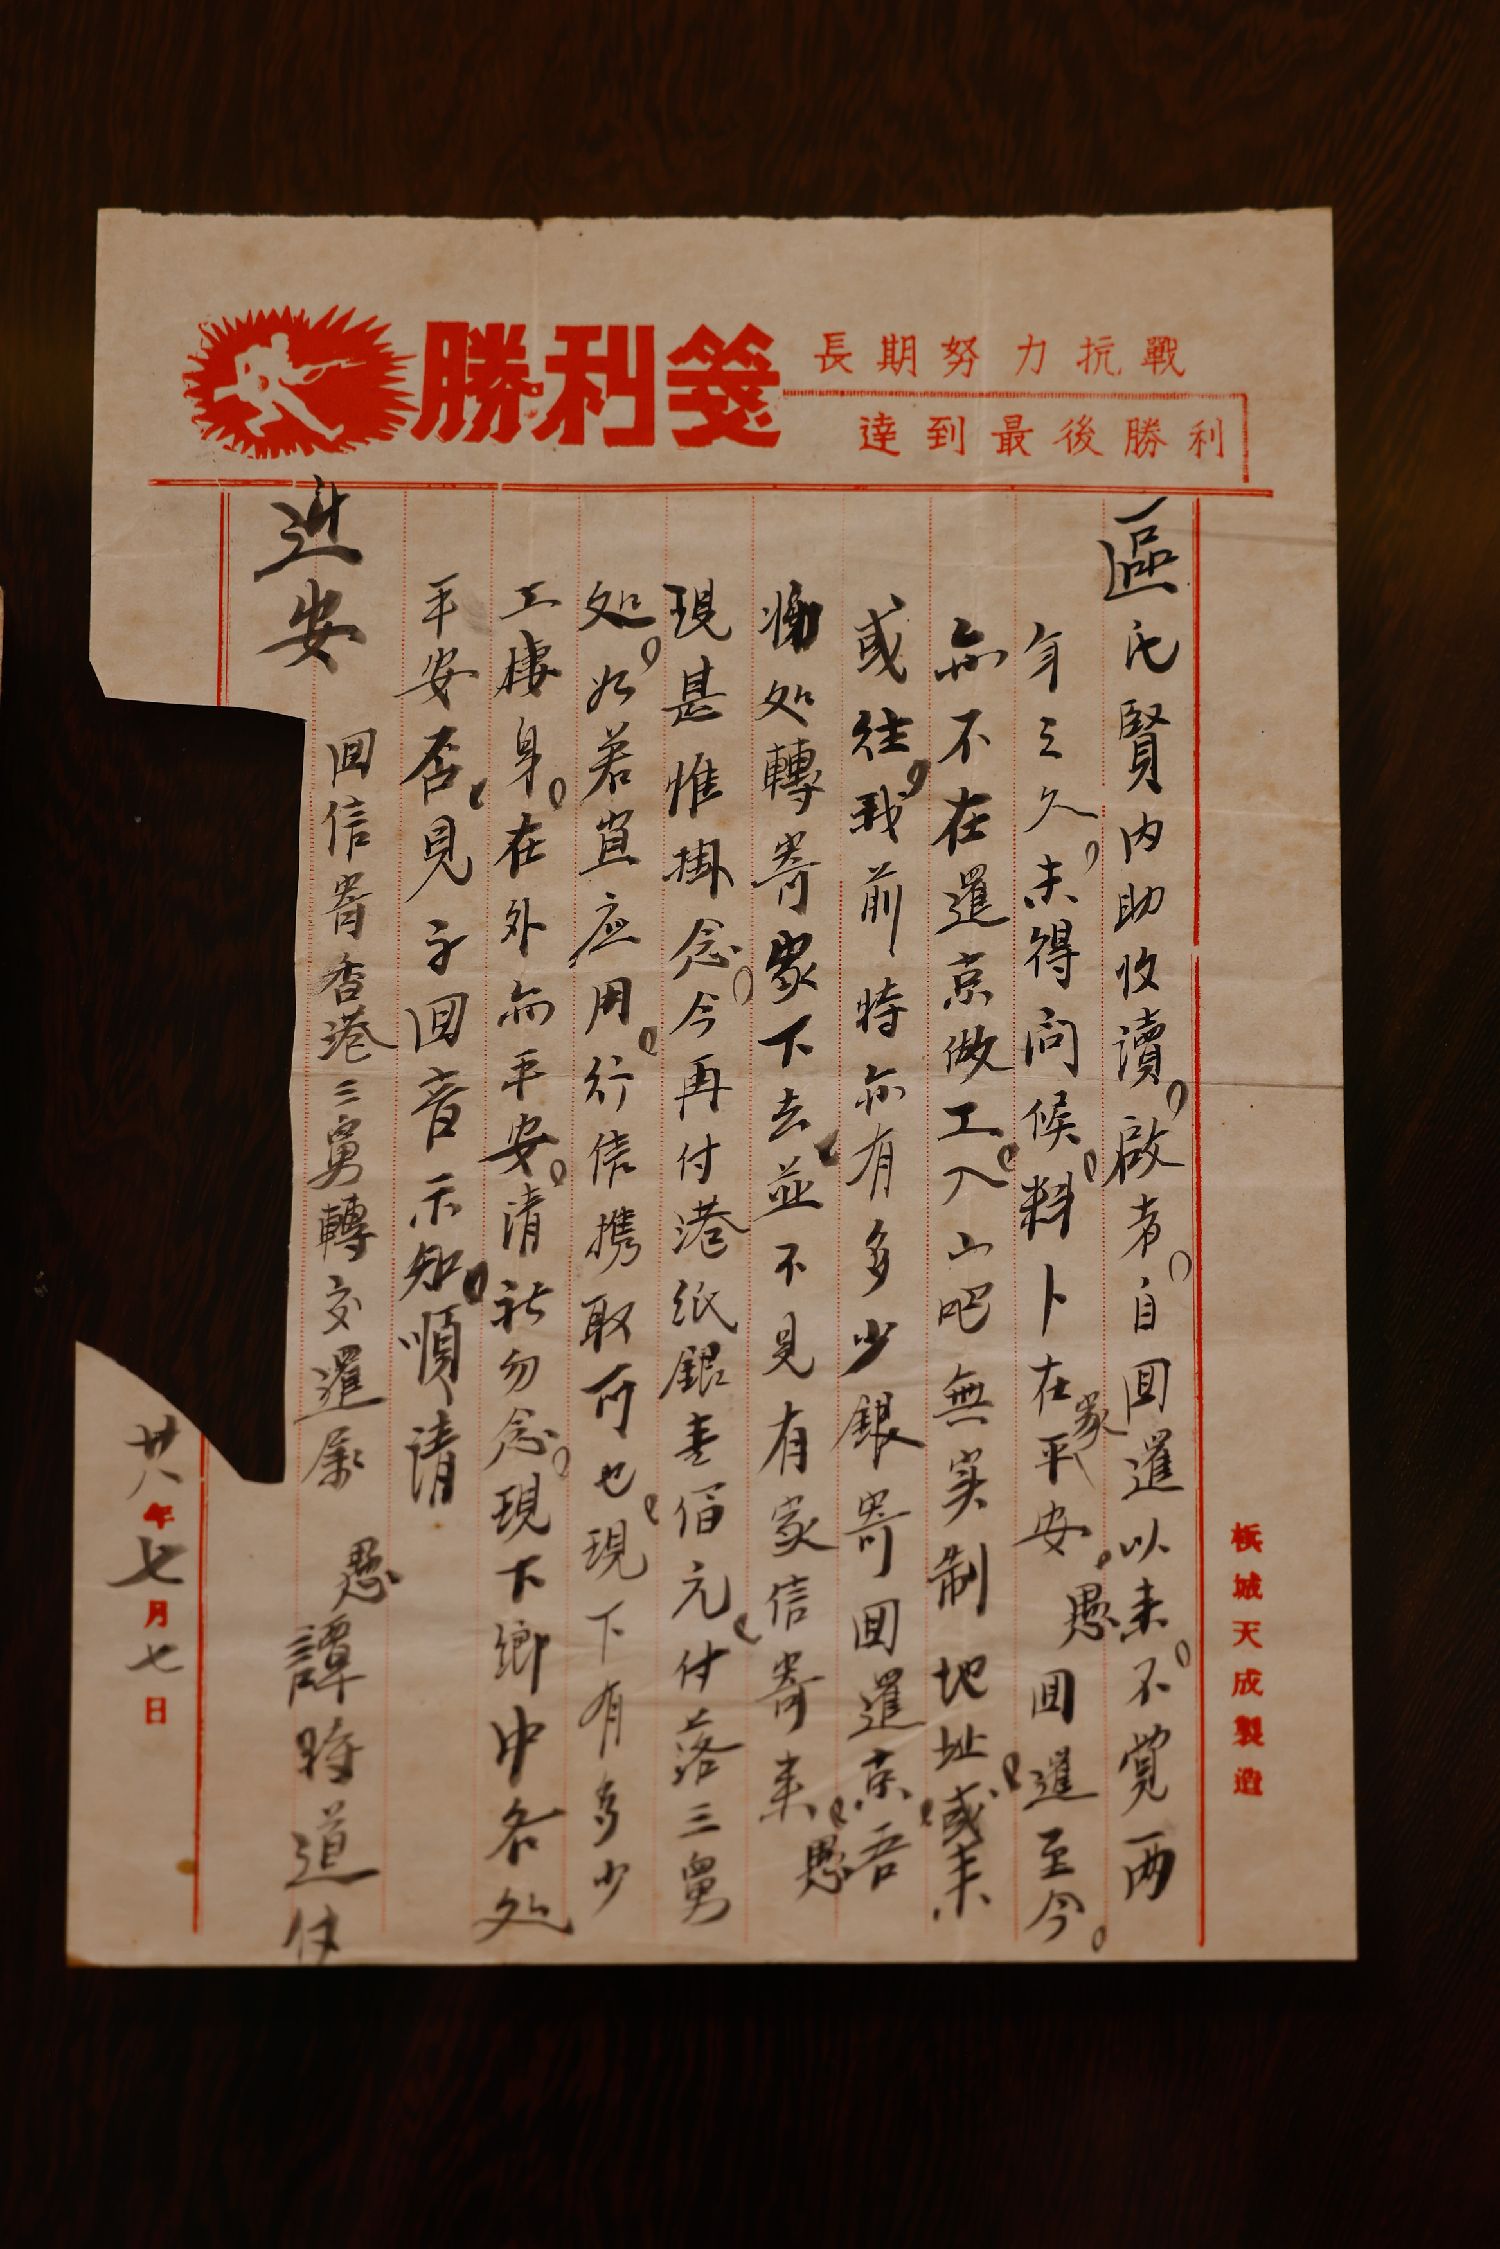 勝利箋
長期努力抗戰
達到最後勝利
區氏賢內助收讀，啟者。自回暹以來。不覺兩
年之久，未得问候，料卜在家平安。愚回暹至今。
亦不在暹京做工，入山吧無实制地址，或來
或往，我前時亦有多少銀寄回暹京，吾
愚
处轉寄家下去，並不見有家信寄来，
現甚惟掛念。今再付港紙銀壹佰元，付落三舅
处，如若宜应用，行信携取可也，現下有多少
工棲身。在外亦平安。请祈勿念。現下鄉中各处
平安否，見字回音示知，順请
近安
回信寄香港三舅轉交暹属
愚譚時道付
廿八年七月七日
檳城天成製造